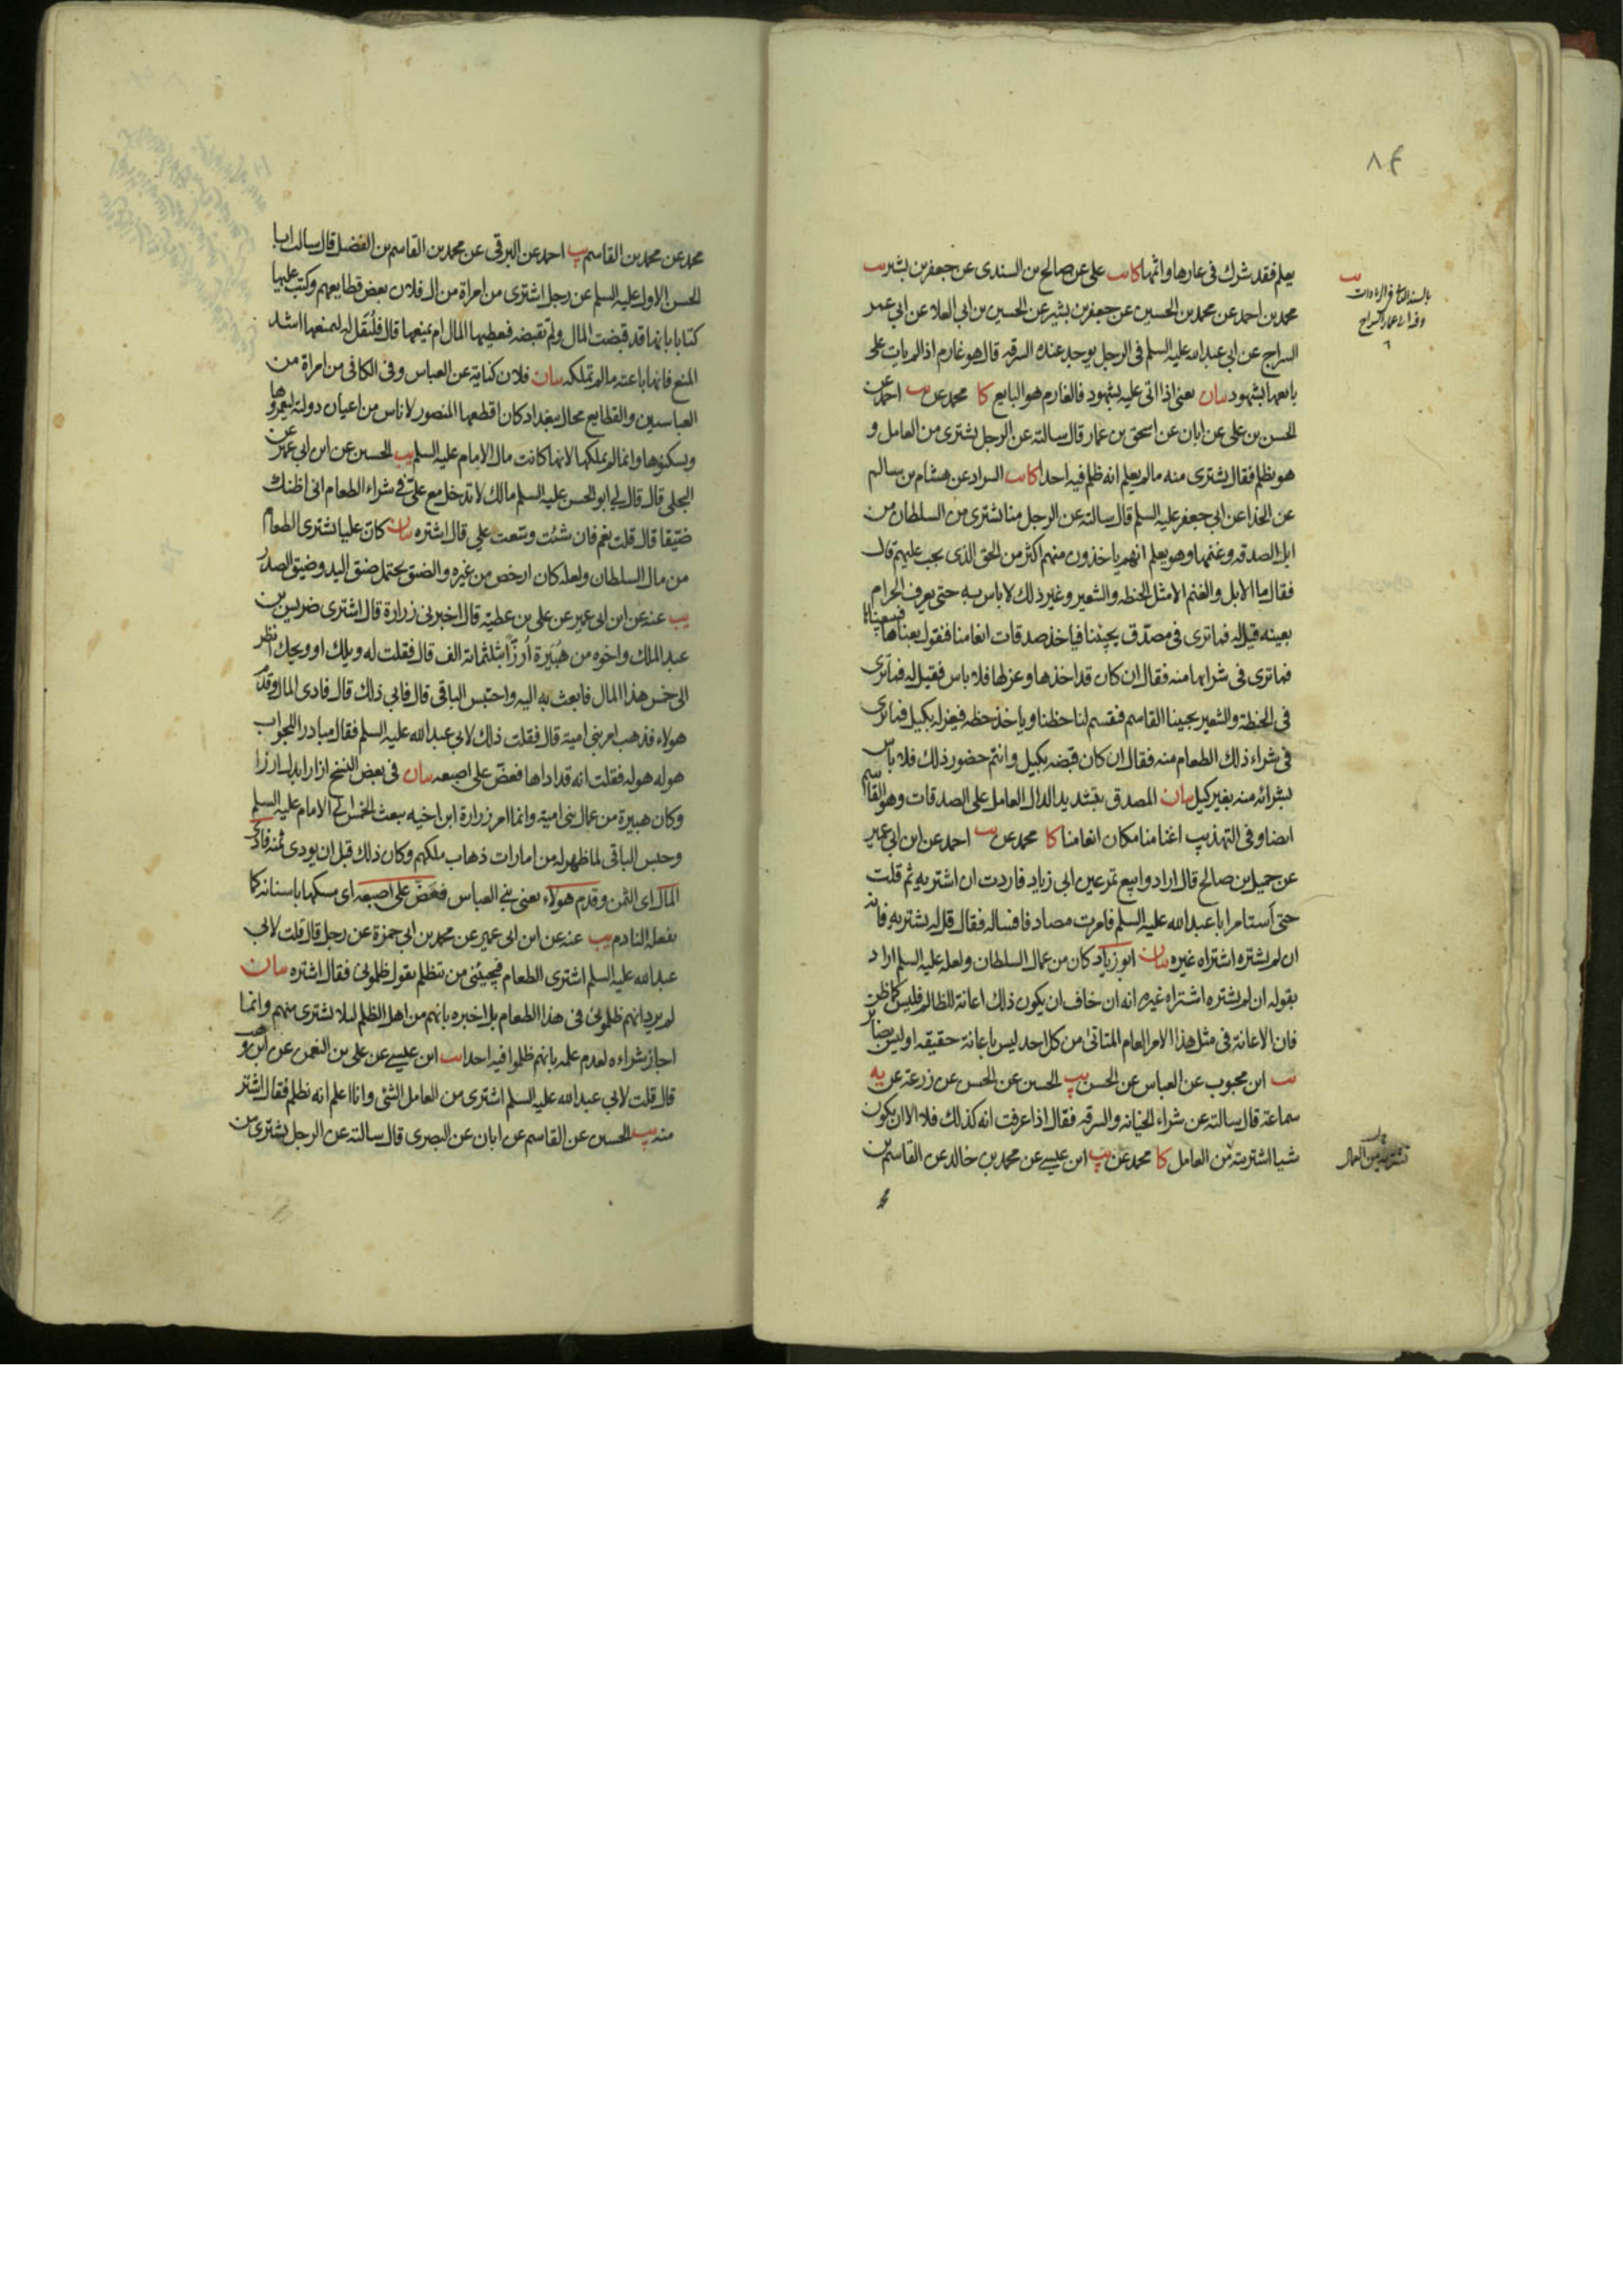 ٨٤
يعلم فقد شرك في عارها واثمها كا يب علي عن صالح بن السندي عن جعفر بن بشير يب
محمد بن احمد عن محمد بن الحسين عن جعفر بن بشير عن الحسين بن ابي العلا عن ابي عمر
السراج عن ابي عبد الله عليه السلم في الرجل يوجد عنده السرقه قال هو غارم اذا لم يات على
بايعها بشهود بيان يعني اذا اتى عليه بشهود فالغارم هو البايع كا محمد عن يب احمد عن
الحسن بن علي عن ابان عن اسحق بن عمار قال سالته عن الرجل يشترى من العامل و
هو يظلم فقال يشترى منه ما لم يعلم انه ظلم فيه احدا كا يب السراد عن هشام بن سالم
عن الحذا عن ابي جعفر عليه السلم قال سالته عن الرجل منا يشترى من السلطان من
ابل الصدقه وغنمها وهو يعلم انهم ياخذون منهم اكثر من الحق الذى يجب عليهم قال
فقال ما الابل والغنم الا مثل الحنطه والشعير وغير ذلك لا باس به حتى يعرف الحرام
بعينه قيل له فما ترى في مصدق يجيئنا فياخذ صدقات انعامنا فنقول بعناها فيبيعناها
فما ترى في شرايها منه فقال ان كان قد اخذها وعزلها فلا باس فقيل له فما ترى
في الحنطة والشعير يجيئنا القاسم فيقسم لنا حظنا وياخذ حظه فيعزله بكيل فما ترى
في شراء ذلك الطعام منه فقال ان كان قبضه بكيل وانتم حضور ذلك فلا باس
بشرائه منه بغير كيل بيان المصدق بتشديد الدال العامل على الصدقات وهو القاسم
ايضا وفي التهذيب اغنامنا مكان انعامنا كا محمد عن يب احمد عن ابن ابي عمير
عن جميل بن صالح قال ارادوا بيع تمر عين ابي زياد فاردت ان اشتريه ثم قلت
حتى استامر ابا عبد الله عليه السلم فامرت مصادفا فساله فقال قل له يشتريه فانه
ان لم يشتره اشتراه غيره بيان ابو زياد كان من عمال السلطان ولعله عليه السلم اراد
بقوله ان لم يشتره اشتراه غيره انه ان خاف ان يكون ذلك اعانة للظالم فليس كما ظن
فان الاعانة في مثل هذا الامر العام المتاتى من كل احد ليس باعانة حقيقه او ليس بضائر
يب ابن محبوب عن العباس عن الحسن يب الحسين عن الحسن عن زرعة عن
سماعة قال سالته عن شراء الخيانه والسرقه فقال اذا عرفت انه كذلك فلا الا ان يكون
شيا اشتريته من العامل كا محمد عن يب ابن عيسى عن محمد بن خالد عن القاسم بن
تشتريه من العمال
محمد عن محمد بن القاسم يب احمد عن البرقي عن محمد بن القاسم بن الفضل قال سالت ابا
الحسن الاول عليه السلم عن رجل اشترى من امراة من ال فلان بعض قطايعهم وكتب عليها
كتابا بانها قد قبضت المال ولم تقبضه فيعطيها المال ام يمنعها قال فليقل له ليمنعها اشد
المنع فانها باعته ما لم تملكه بيان فلان كناية عن العباس وفي الكافي من امراة من
العباسيين والقطايع محال ببغداد كان اقطعها المنصور لاناس من اعيان دولته ليعمروها
ويسكنوها وانما لم يملكها لانها كانت مال الامام عليه السلم يب الحسين عن ابن ابي عمير عن
البجلي قال قال لي ابو الحسن عليه السلم مالك لا تدخل مع علي في شراء الطعام اني اظنك
ضيقا قال قلت نعم فان شئت وسعت علي قال اشتره بيان كان علي يشترى الطعام
من مال السلطان ولعله كان ارخص من غيره والضيق يحتمل ضيق اليد وضيق الصدر
يب عنه عن ابن ابي عمير عن علي بن عطية قال اخبرني زرارة قال اشترى ضريس بن
عبد الملك واخوه من هبيرة ارزا بثلثمائة الف قال فقلت له ويلك او ويحك انظر
الى خمس هذا المال فابعث به اليه واحتبس الباقي قال فابي ذلك قال فادى المال وقدم
هولاء فذهب امر بني امية قال فقلت ذلك لابي عبد الله عليه السلم فقال مبادرا للجواب
هو له هو له فقلت انه قد اداها فعض على اصبعه بيان في بعض النسخ ازارا بدل ارزا
وكان هبيرة من عمال بني امية وانما امر زرارة ابن اخيه ببعث الخمس الى الامام عليه السلم
وحبس الباقي لما ظهر له من امارات ذهاب ملكهم وكان ذلك قبل ان يودى ثمنه فادى
المال اى الثمن وقدم هولاء يعنى بني العباس فعض على اصبعه اى مسكها باسنانه كما
يفعله النادم يب عنه عن ابن ابي عمير عن محمد بن ابي حمزة عن رجل قال قلت لابي
عبد الله عليه السلم اشترى الطعام فيجيئنى من يتظلم يقول ظلموني فقال اشتره بيان
لم يرد انهم ظلموني في هذا الطعام بل اخبره بانهم من اهل الظلم لئلا يشترى منهم وانما
اجاز شراءه لعدم علمه بانهم ظلموا فيه احدا يب ابن عيسى عن علي بن النعمن عن ابن وهب
قال قلت لابي عبد الله عليه السلم اشترى من العامل الشئ وانا اعلم انه يظلم فقال اشتر
منه يب الحسين عن القاسم عن ابان عن البصرى قال سالته عن الرجل يشترى من